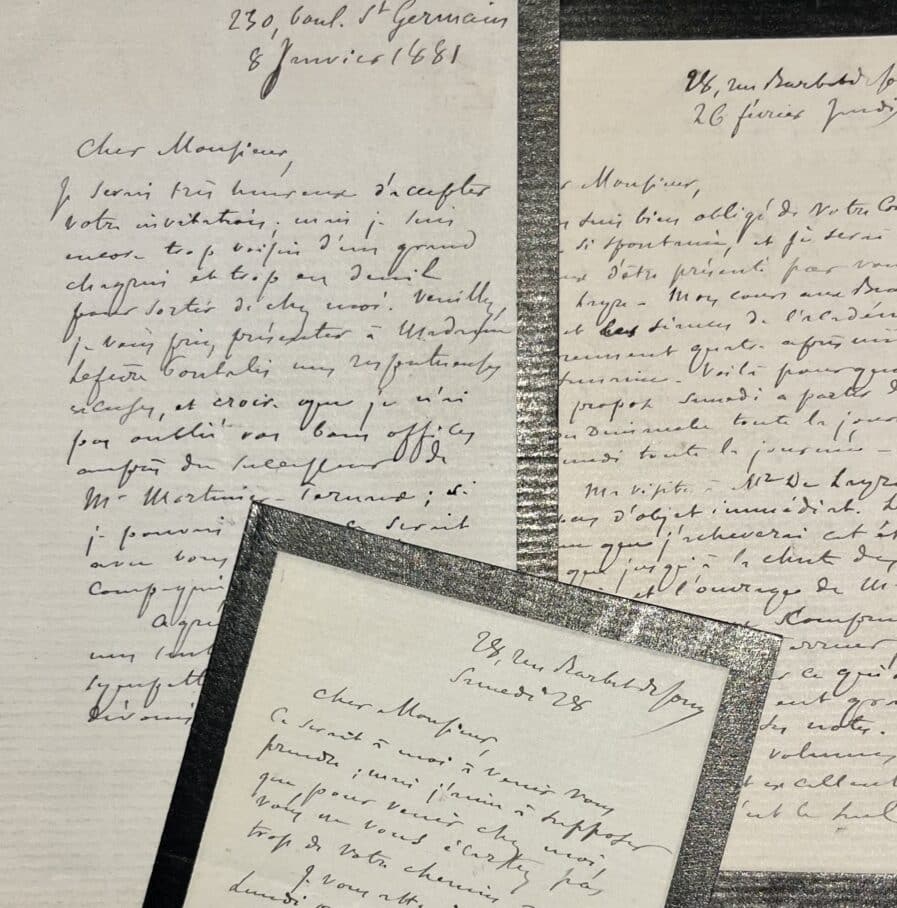 230, boul. St Germain
8 Janvier 1881
Cher Monsieur,
Je serais très heureux d'accepter
votre invitation; mais je suis
encore trop voisin d'un grand
chagrin et trop en deuil
pour sortir de chez moi. Veuillez,
je vous prie, présenter à Madame
Lefèvre Pontalis mes respectueuses
excuses, et croire que je n'ai
pas oublié vos bons offices
auprès du successeur de
Mr Martinez-Ternaux; si
je pouvais ce serait
avec vous
compagnie
Agré
mes sent
sympath
dévoués
28, rue Barbet de Jo
26 février Jeudi
r Monsieur,
suis bien obligé de votre Co
si spontanée, et je serai
d'être présenté par vou
Layre - Mon cours aux Bea
et les séances de l'académ
prennent quatre après mi
semaine. Voilà pourquoi
propose Samedi à partir d
Dimanche toute la jour
undi toute la journée -
Ma visite à Mr De Layre
pas d'objet immédiat. L
que j'acheverai cet ét
que jusqu'à la chute de
et l'ouvrage de M
dernier
ce qu'i
ent gr
ses notes.
volumes
est excellent
c'est le seul
28, rue Barbet de Jouy
Samedi 28
Cher Monsieur,
Ce serait à moi à venir vous
prendre; mais j'aime à supposer
que pour venir chez moi,
vous ne vous écartez pas
trop de votre chemin
Je vous att
Lundi